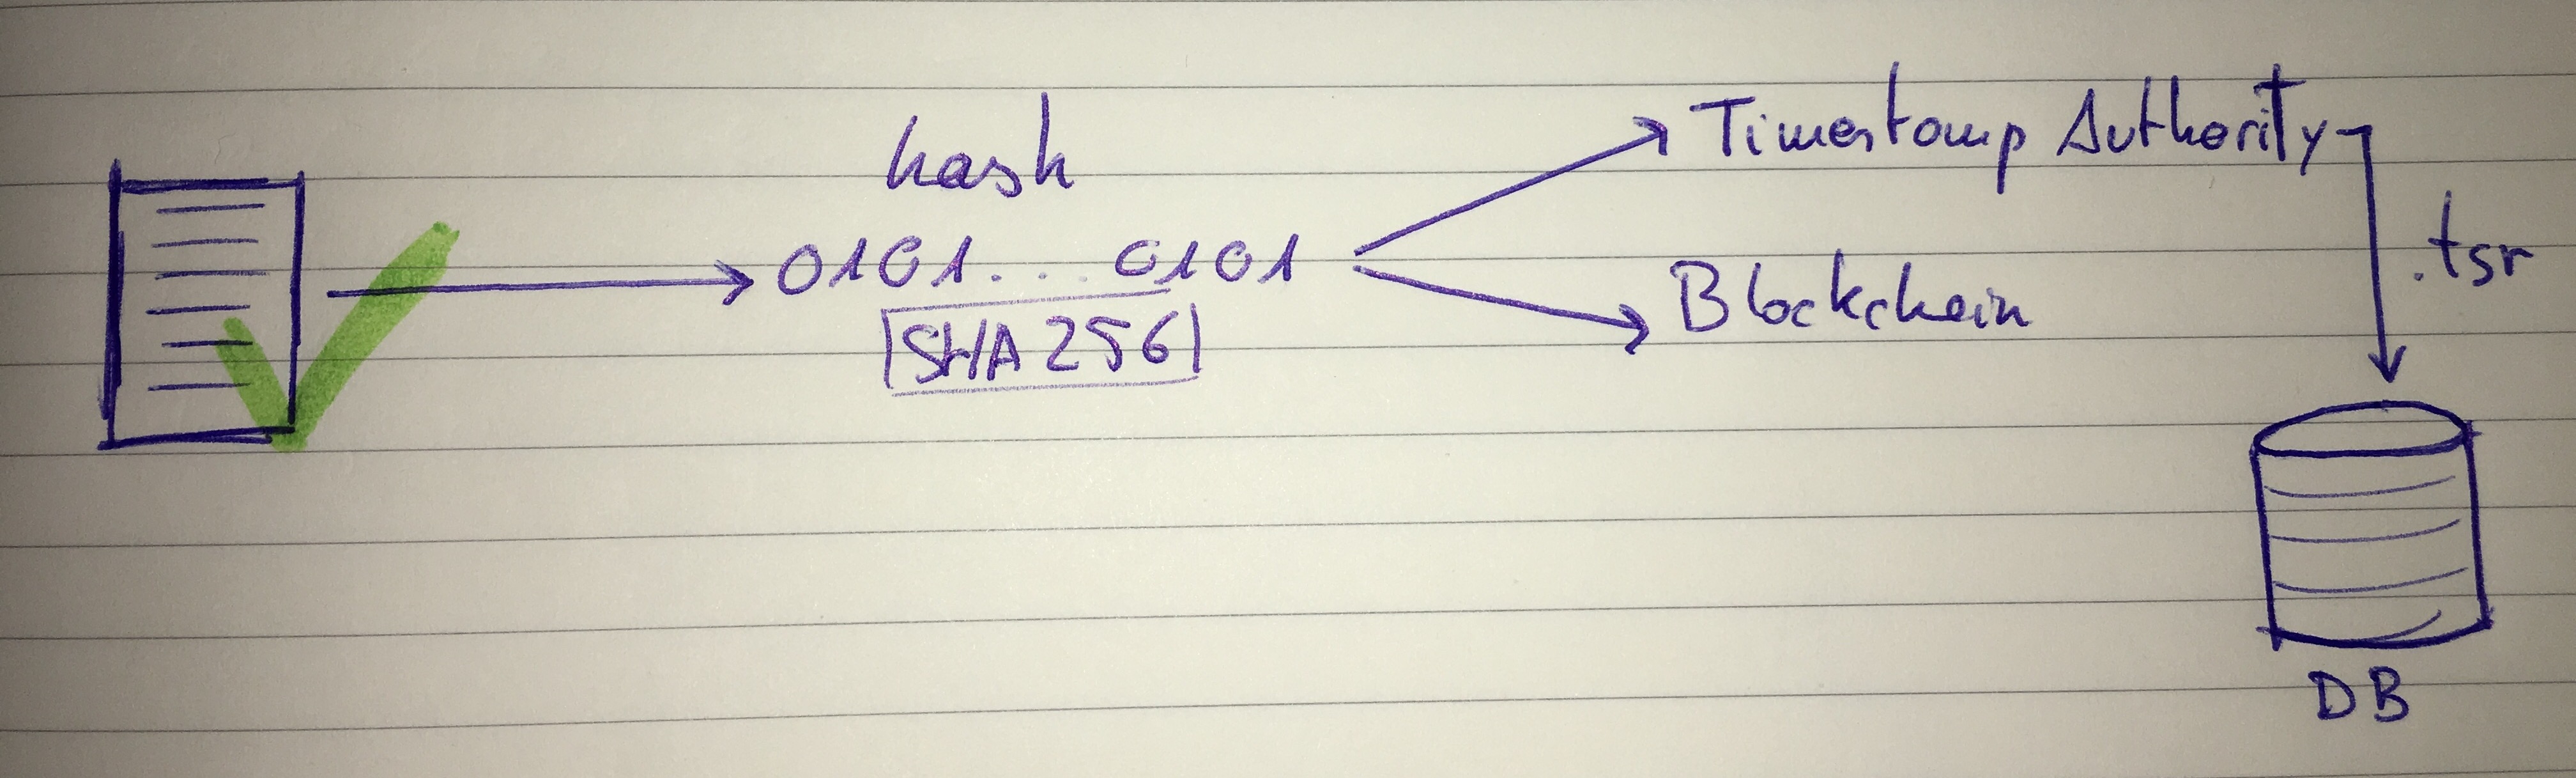 hash
0101... 0101
SHA 256
Timestamp Authority
Blockchain
.tsr
DB